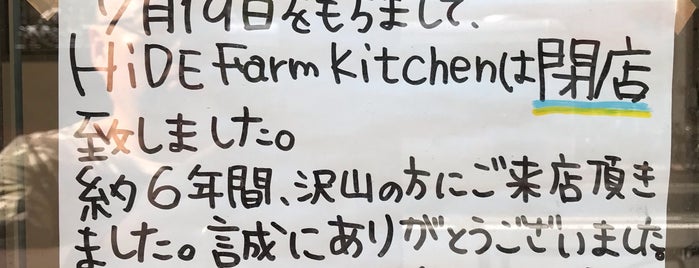 7月19日をもちまして、
HiDE Farm Kitchenは閉店
致しました。
約6年間、沢山の方にご来店頂き
ました。誠にありがとうございました